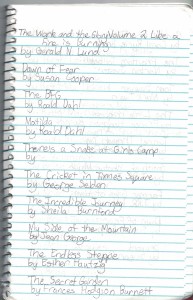 The Work and the Glory Volume 2 Like a
Fire is Burning
by Gerald N. Lund
Dawn of Fear
by Susan Cooper
The BFG
by Roald Dahl
Matilda
by Roald Dahl
There is a Snake at Girls Camp
by
The Cricket in Times Square
by George Selden
The Incredible Journey
by Sheila Burnford
My Side of the Mountain
by Jean George
The Endless Steppe
by Esther Hautzig
The Secret Garden
by Frances Hodgson Burnett